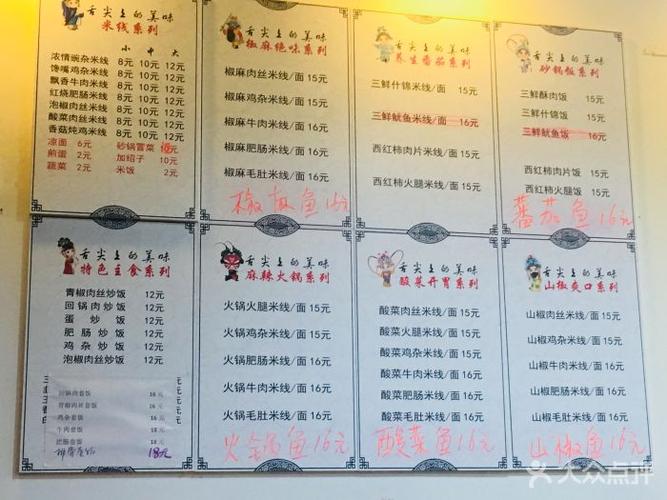 舌尖上的美味
米线系列
小 中 大
浓情碗杂米线 8元 10元 12元
馋嘴鸡杂米线 8元 10元 12元
飘香牛肉米线 8元 10元 12元
红烧肥肠米线 8元 10元 12元
泡椒肉丝米线 8元 10元 12元
酸菜肉丝米线 8元 10元 12元
香菇炖鸡米线 8元 10元 12元
凉面 6元 砂锅冒菜 元
煎蛋 2元 加绍子 10元
蔬菜 2元 米饭 2元
舌尖上的美味
椒麻绝味系列
椒麻肉丝米线/面 15元
椒麻鸡杂米线/面 15元
椒麻牛肉米线/面 16元
椒麻肥肠米线/面 16元
椒麻毛肚米线/面 16元
椒麻鱼16元
舌尖上的美味
养生番茄系列
三鲜什锦米线/面 15元
三鲜鱿鱼米线/面 16元
西红柿肉片米线/面 15元
西红柿火腿米线/面 15元
舌尖上的美味
砂锅饭系列
三鲜酥肉饭 15元
三鲜什锦饭 15元
三鲜鱿鱼饭 16元
西红柿肉片饭 15元
西红柿火腿饭 15元
蕃茄鱼16元
舌尖上的美味
特色主食系列
青椒肉丝炒饭 12元
回锅肉炒饭 12元
蛋炒饭 12元
肥肠炒饭 12元
鸡杂炒饭 12元
泡椒肉丝炒饭 12元
回锅肉套饭 16元
青椒肉丝套饭 16元
鸡杂套饭 16元
牛肉套饭 18元
肥肠套饭 18元
18元
舌尖上的美味
麻辣火锅系列
火锅火腿米线/面 15元
火锅鸡杂米线/面 15元
火锅肥肠米线/面 16元
火锅牛肉米线/面 16元
火锅毛肚米线/面 16元
火锅鱼16元
舌尖上的美味
酸菜开胃系列
酸菜肉丝米线/面 15元
酸菜火腿米线/面 15元
酸菜鸡杂米线/面 15元
酸菜牛肉米线/面 16元
酸菜肥肠米线/面 16元
酸菜毛肚米线/面 16元
酸菜鱼16元
舌尖上的美味
山椒爽口系列
山椒肉丝米线/面 15元
山椒牛肉米线/面 16元
山椒肥肠米线/面 16元
山椒毛肚米线/面 16元
山椒鱼16元
大众点评